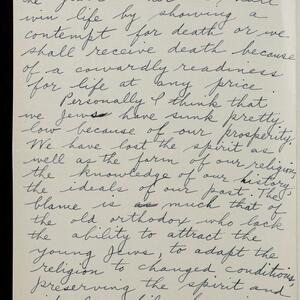 win life by showing a
contempt for death or we
shall receive death because
of a cowardly readiness
for life at any price.
Personally I think that
we Jews have sunk pretty
low because of our prosperity.
We have lost the spirit as
well as the form of our religion,
the knowledge of our history,
the ideals of our past. The
blame is as much that of
the old orthodox who lack
the ability to attract the
young Jews, to adapt the
religion to changed conditions,
preserving the spirit and